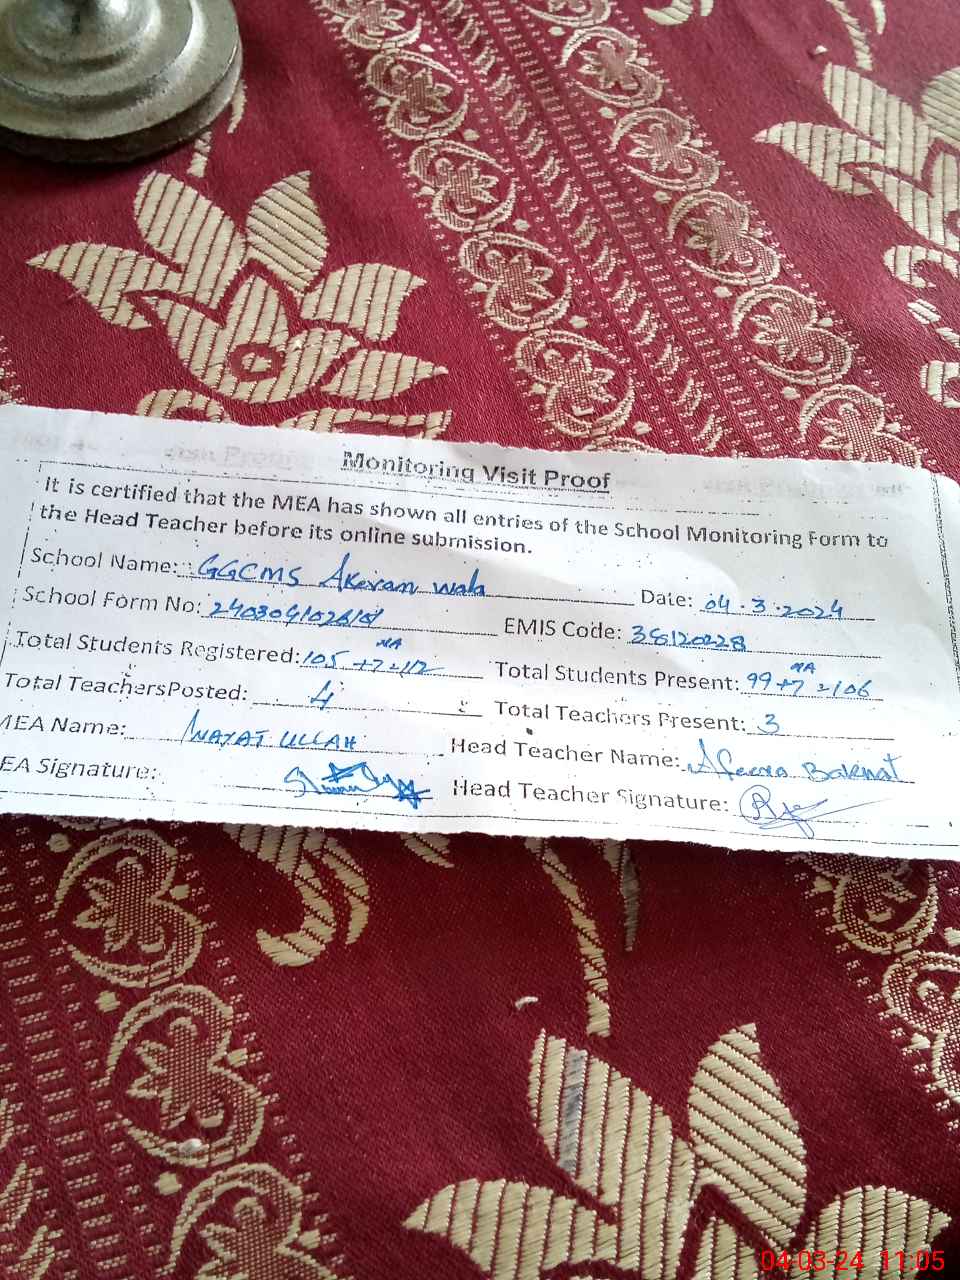 Monitoring Visit Proof
It is certified that the MEA has shown all entries of the School Monitoring Form to
the Head Teacher before its online submission.
School Name: GGCMS Akeram Wala Date: 04.3.2024
School Form No: EMIS Code: 38120228
Total Students Registered: 105 +7=112 NA Total Students Present: 99+7=106 NA
Total TeachersPosted: 4 Total Teachers Present: 3
MEA Name: INAYAT ULLAH Head Teacher Name:
EA Signature: Head Teacher Signature:
04-03-24 11:05